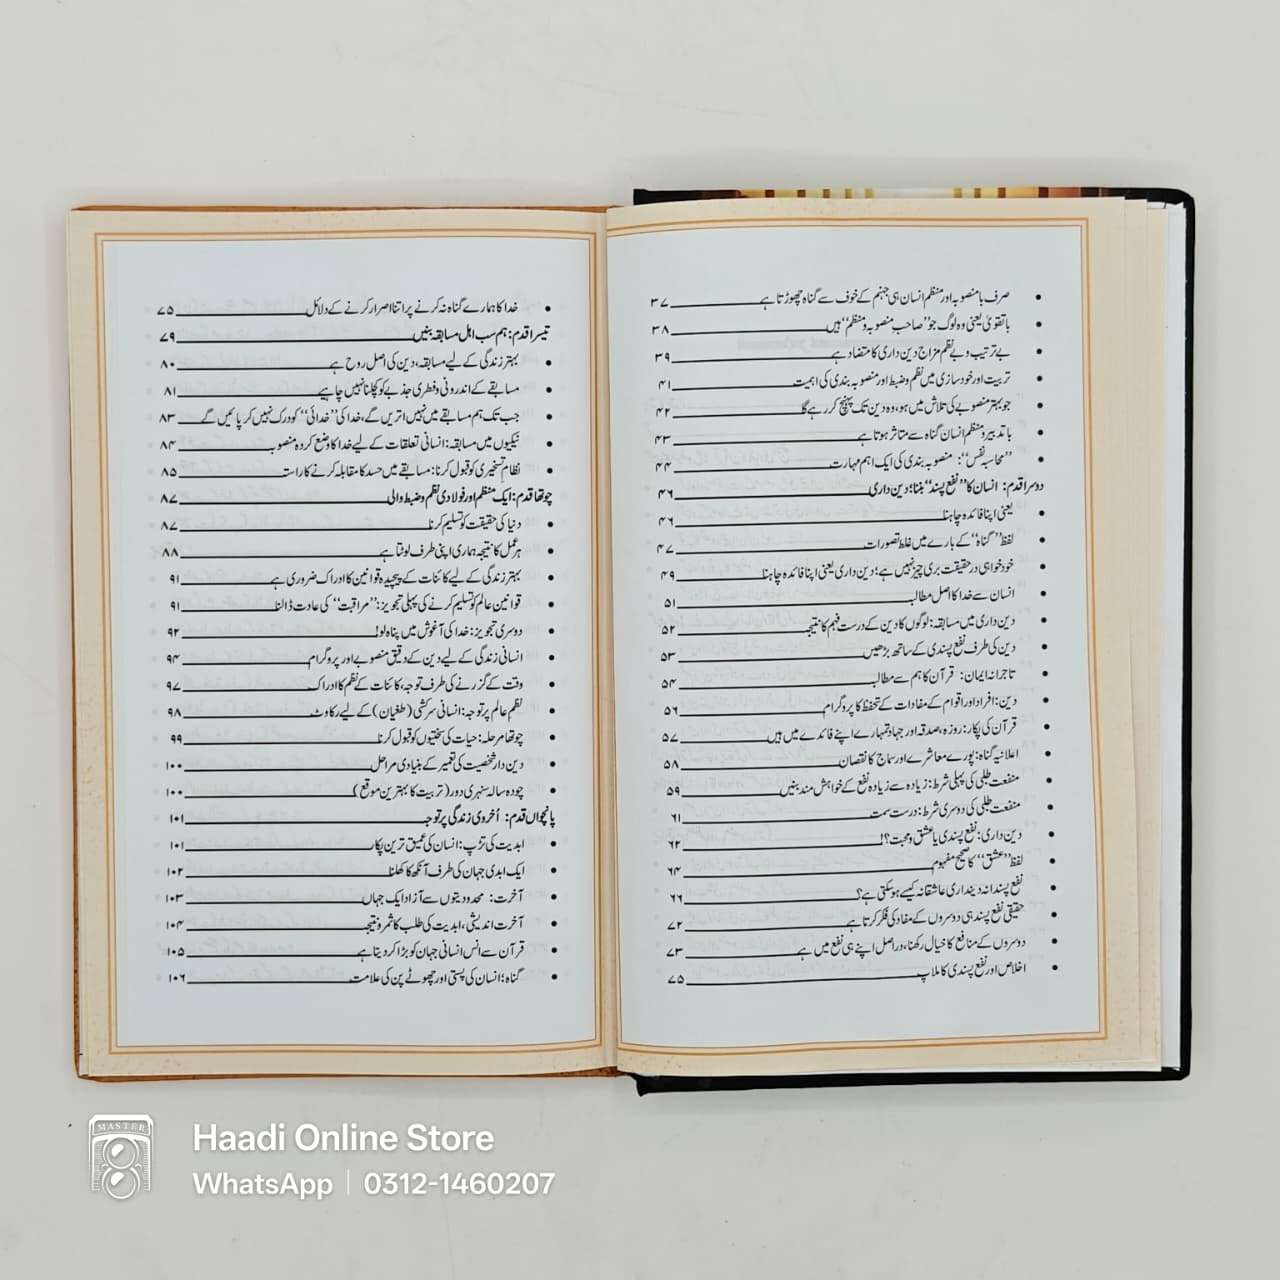 صرف بامنصوبہ اور منظم انسان ہی جہنم کے خوف سے گناہ چھوڑتا ہے ۳۷
باتقویٰ یعنی وہ لوگ جو ”صاحبِ منصوبہ و منظم“ ہیں ۳۸
بے ترتیب و بے نظم مزاج دین داری کا متضاد ہے ۳۹
تربیت اور خودسازی میں نظم و ضبط اور منصوبہ بندی کی اہمیت ۴۱
جو بہتر منصوبے کی تلاش میں ہو، وہ دین تک پہنچ کر رہے گا ۴۲
باتدبیر و منظم انسان گناہ سے متاثر ہوتا ہے ۴۳
”محاسبہ نفس“: منصوبہ بندی کی ایک اہم مہارت ۴۴
دوسرا قدم: انسان کا ”نفع پسند“ بننا؛ دین داری ۴۶
یعنی اپنا فائدہ چاہنا ۴۶
لفظ ”گناہ“ کے بارے میں غلط تصورات ۴۷
خودخواہی در حقیقت بری چیز نہیں ہے؛ دین داری یعنی اپنا فائدہ چاہنا ۴۹
انسان سے خدا کا اصل مطالبہ ۵۱
دین داری میں مسابقہ: لوگوں کا دین کے درست فہم کا نتیجہ ۵۲
دین کی طرف نفع پسندی کے ساتھ بڑھیں ۵۳
تاجرانہ ایمان: قرآن کا ہم سے مطالبہ ۵۴
دین: افراد اور اقوام کے مفادات کے تحفظ کا پروگرام ۵۶
قرآن کی پکار: روزہ، صدقہ اور جہاد تمہارے اپنے فائدے میں ہیں ۵۷
اعلانیہ گناہ: پورے معاشرے اور سماج کا نقصان ۵۸
منفعت طلبی کی پہلی شرط: زیادہ سے زیادہ نفع کے خواہش مند بنیں ۵۹
منفعت طلبی کی دوسری شرط: درست سمت ۶۱
دین داری: نفع پسندی یا عشق و محبت؟! ۶۲
لفظ ”عشق“ کا صحیح مفہوم ۶۴
نفع پسندانہ دینداری عاشقانہ کیسے ہو سکتی ہے؟ ۶۶
حقیقی نفع پسند ہی دوسروں کے مفاد کی فکر کرتا ہے ۷۲
دوسروں کے منافع کا خیال رکھنا، دراصل اپنے ہی نفع میں ہے ۷۳
اخلاص اور نفع پسندی کا ملاپ ۷۵
خدا کا ہمارے گناہ نہ کرنے پر اتنا اصرار کرنے کے دلائل ۷۵
تیسرا قدم: ہم سب اہل مسابقہ بنیں ۷۹
بہتر زندگی کے لیے مسابقہ، دین کی اصل روح ہے ۸۰
مسابقے کے اندرونی و فطری جذبے کو کچلنا نہیں چاہیے ۸۱
جب تک ہم مسابقے میں نہیں اتریں گے، خدا کی ”خدائی“ کو درک نہیں کر پائیں گے ۸۳
نیکیوں میں مسابقہ: انسانی تعلقات کے لیے خدا کا وضع کردہ منصوبہ ۸۴
نظامِ تسخیری کو قبول کرنا: مسابقے میں حسد کا مقابلہ کرنے کا راستہ ۸۵
چوتھا قدم: ایک منظم اور فولادی نظم و ضبط والی ۸۷
دنیا کی حقیقت کو تسلیم کرنا ۸۷
ہر عمل کا نتیجہ ہماری اپنی طرف لوٹتا ہے ۸۸
بہتر زندگی کے لیے کائنات کے پیچیدہ قوانین کا ادراک ضروری ہے ۹۱
قوانین عالم کو تسلیم کرنے کی پہلی تجویز: ”مراقبت“ کی عادت ڈالنا ۹۱
دوسری تجویز: خدا کی آغوش میں پناہ لو! ۹۲
انسانی زندگی کے لیے دین کے دقیق منصوبے اور پروگرام ۹۴
وقت کے گزرنے کی طرف توجہ، کائنات کے نظم کا ادراک ۹۷
نظم عالم پر توجہ: انسانی سرکشی (طغیان) کے لیے رکاوٹ ۹۸
چوتھا مرحلہ: حیات کی سختیوں کو قبول کرنا ۹۹
دین دار شخصیت کی تعمیر کے بنیادی مراحل ۱۰۰
چودہ سالہ سنہری دور (تربیت کا بہترین موقع) ۱۰۰
پانچواں قدم: اُخروی زندگی پر توجہ ۱۰۱
ابدیت کی تڑپ: انسان کی عمیق ترین پکار ۱۰۱
ایک ابدی جہان کی طرف آنکھ کا کھلنا ۱۰۲
آخرت: محدودیتوں سے آزاد ایک جہاں ۱۰۳
آخرت اندیشی، ابدیت کی طلب کا ثمر و نتیجہ ۱۰۴
قرآن سے انس انسانی جہان کو بڑا کر دیتا ہے ۱۰۵
گناہ: انسان کی پستی اور چھوٹے پن کی علامت ۱۰۶
MASTER
Haadi Online Store
WhatsApp | 0312-1460207